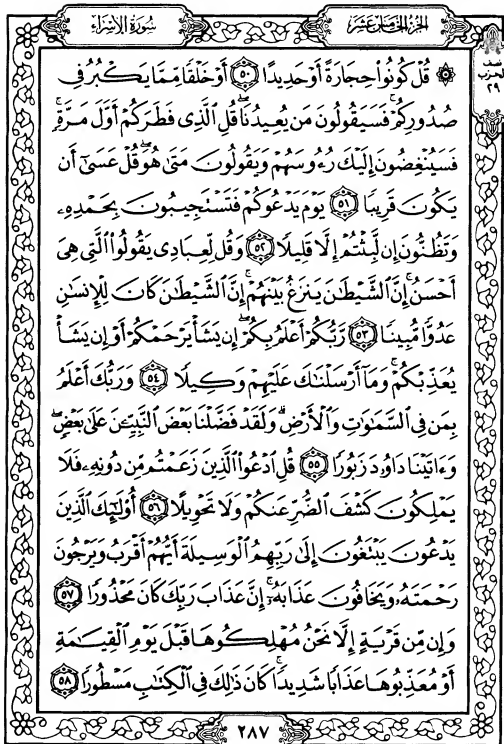 سُورَةُ الإِسْرَاءِ
الجُزْءُ الخَامِسَ عَشَرَ
نصف
الحزب
٢٩
۞ قُلْ كُونُوا۟ حِجَارَةً أَوْ حَدِيدًا ٥٠ أَوْ خَلْقًا مِّمَّا يَكْبُرُ فِى
صُدُورِكُمْ ۚ فَسَيَقُولُونَ مَن يُعِيدُنَا ۖ قُلِ ٱلَّذِى فَطَرَكُمْ أَوَّلَ مَرَّةٍ ۚ
فَسَيُنْغِضُونَ إِلَيْكَ رُءُوسَهُمْ وَيَقُولُونَ مَتَىٰ هُوَ ۖ قُلْ عَسَىٰٓ أَن
يَكُونَ قَرِيبًا ٥١ يَوْمَ يَدْعُوكُمْ فَتَسْتَجِيبُونَ بِحَمْدِهِۦ
وَتَظُنُّونَ إِن لَّبِثْتُمْ إِلَّا قَلِيلًا ٥٢ وَقُل لِّعِبَادِى يَقُولُوا۟ ٱلَّتِى هِىَ
أَحْسَنُ ۚ إِنَّ ٱلشَّيْطَٰنَ يَنزَغُ بَيْنَهُمْ ۚ إِنَّ ٱلشَّيْطَٰنَ كَانَ لِلْإِنسَٰنِ
عَدُوًّا مُّبِينًا ٥٣ رَّبُّكُمْ أَعْلَمُ بِكُمْ ۖ إِن يَشَأْ يَرْحَمْكُمْ أَوْ إِن يَشَأْ
يُعَذِّبْكُمْ ۚ وَمَآ أَرْسَلْنَٰكَ عَلَيْهِمْ وَكِيلًا ٥٤ وَرَبُّكَ أَعْلَمُ
بِمَن فِى ٱلسَّمَٰوَٰتِ وَٱلْأَرْضِ ۗ وَلَقَدْ فَضَّلْنَا بَعْضَ ٱلنَّبِيِّـۧنَ عَلَىٰ بَعْضٍ ۖ
وَءَاتَيْنَا دَاوُۥدَ زَبُورًا ٥٥ قُلِ ٱدْعُوا۟ ٱلَّذِينَ زَعَمْتُم مِّن دُونِهِۦ فَلَا
يَمْلِكُونَ كَشْفَ ٱلضُّرِّ عَنكُمْ وَلَا تَحْوِيلًا ٥٦ أُو۟لَٰٓئِكَ ٱلَّذِينَ
يَدْعُونَ يَبْتَغُونَ إِلَىٰ رَبِّهِمُ ٱلْوَسِيلَةَ أَيُّهُمْ أَقْرَبُ وَيَرْجُونَ
رَحْمَتَهُۥ وَيَخَافُونَ عَذَابَهُۥٓ ۚ إِنَّ عَذَابَ رَبِّكَ كَانَ مَحْذُورًا ٥٧
وَإِن مِّن قَرْيَةٍ إِلَّا نَحْنُ مُهْلِكُوهَا قَبْلَ يَوْمِ ٱلْقِيَٰمَةِ
أَوْ مُعَذِّبُوهَا عَذَابًا شَدِيدًا ۚ كَانَ ذَٰلِكَ فِى ٱلْكِتَٰبِ مَسْطُورًا ٥٨
٢٨٧